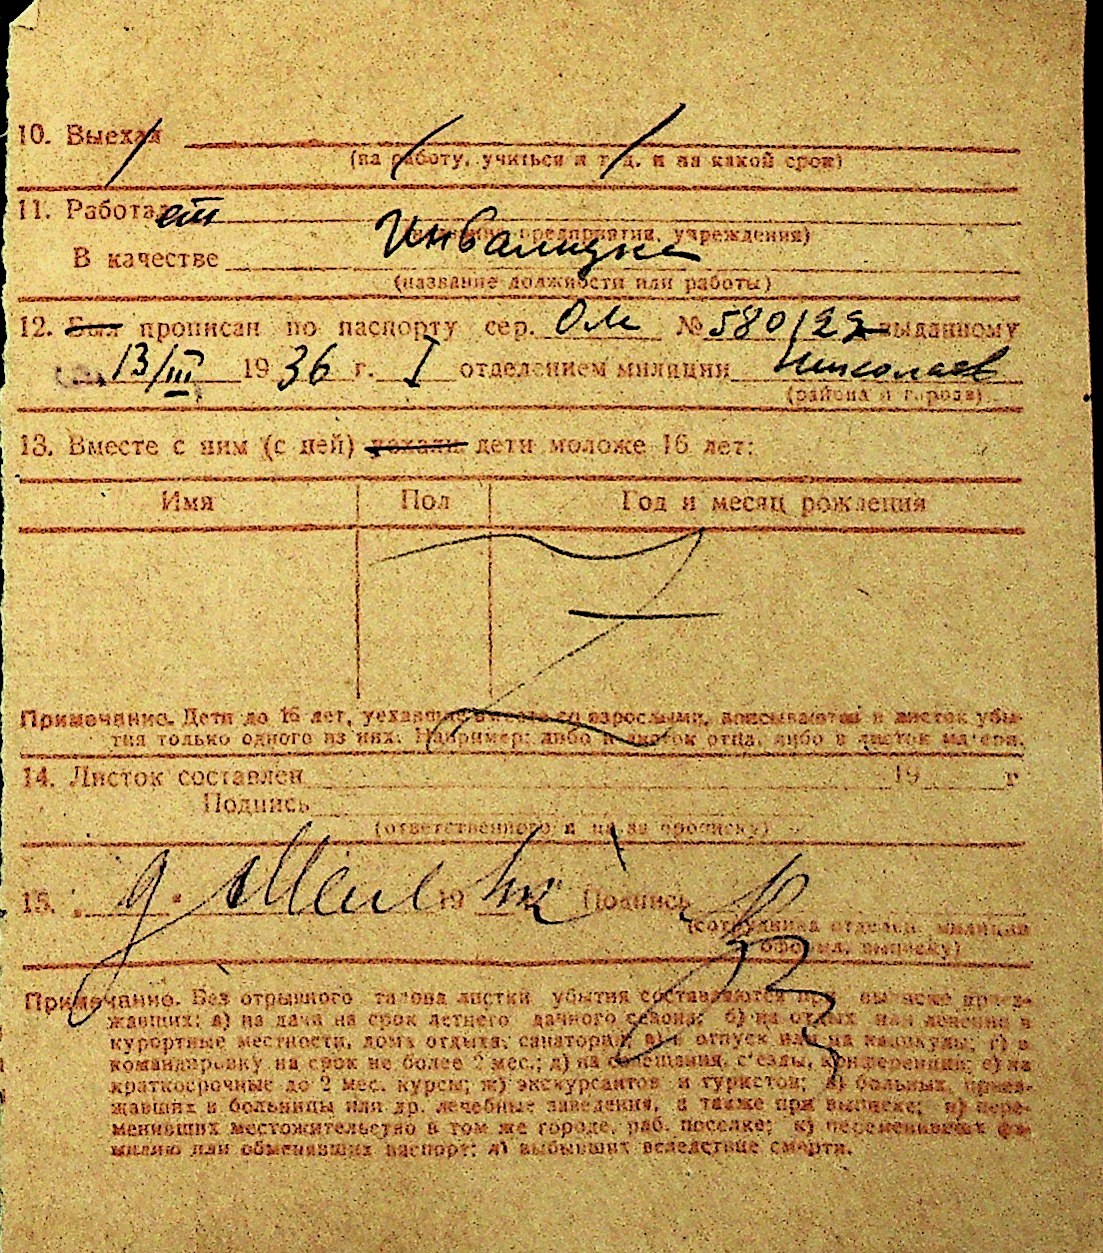 10. Выехал
(на работу, учиться и т. д. и на какой срок)
11. Работает
(название предприятия, учреждения)
Инвалидка
В качестве
(название должности или работы)
12. Был прописан по паспорту сер. ОМ № 580122 выданному
13/III 1936 г. I отделением милиции Николаев
(района и города)
13. Вместе с ним (с ней) уехали дети моложе 16 лет:
Имя Пол Год и месяц рождения
Примечание. Дети до 16 лет, уехавшие вместе со взрослыми, вписываются в листок убы-
тия только одного из них. Например: либо в листок отца, либо в листок матери.
14. Листок составлен 19 г
Подпись
(ответственного за прописку)
15. 19 Подпись
(сотрудника отделен. милиции
оформ. выписку)
Примечание. Без отрывного талона листки убытия составляются при выписке приез-
жавших: а) на дачи на срок летнего дачного сезона; б) на отдых или лечение в
курортные местности, дома отдыха, санатории; в) в отпуск или на каникулы; г) в
командировку на срок не более 2 мес.; д) на совещания, с'езды, конференции; е) на
краткосрочные до 2 мес. курсы; ж) экскурсантов и туристов; з) больных, приез-
жавших в больницы или др. лечебные заведения, а также при выписке; и) пере-
менивших местожительство в том же городе, раб. поселке; к) переменивших фа-
милию или обменявших паспорт; л) выбывших вследствие смерти.